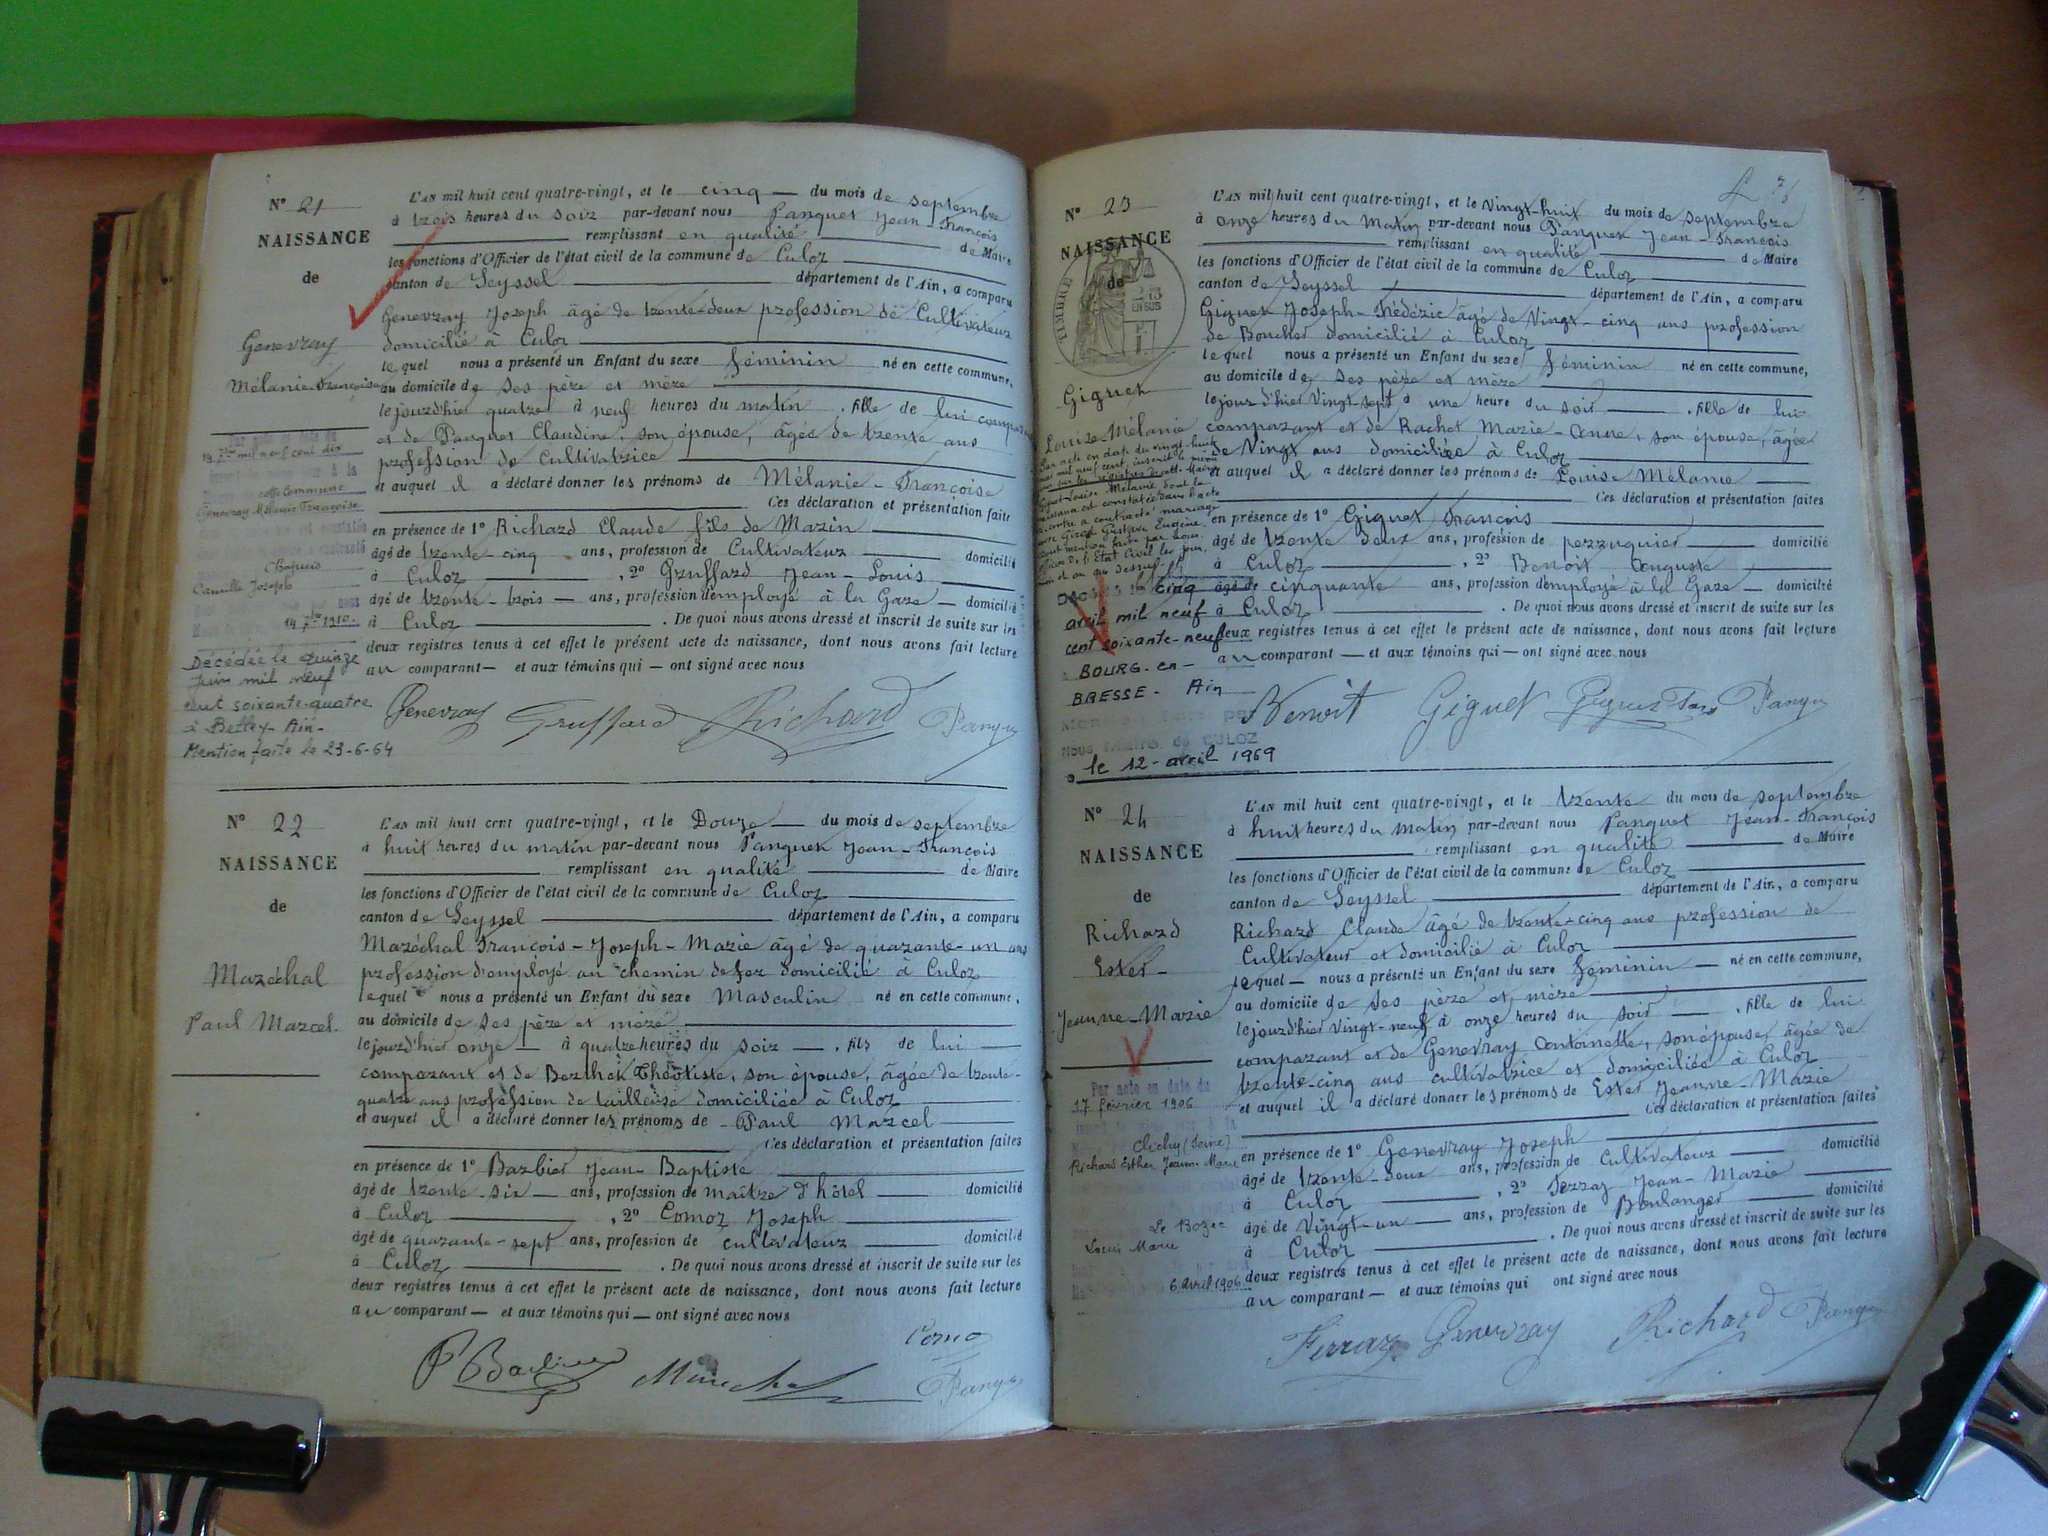 N° 21
NAISSANCE
de
Genevray
Mélanie-Françoise
Par acte en date du
13 7bre mil neuf cent dix
cette commune
Genevray Mélanie Françoise
Camille Joseph
14 7bre 1910.
Décédée le quinze
Juin mil neuf
cent soixante-quatre
à Belley-Ain-
Mention faite le 23-6-64
L'AN mil huit cent quatre-vingt, et le cinq du mois de septembre
à trois heures du soir par-devant nous Panquet Jean-François
remplissant en qualité de Maire
les fonctions d'Officier de l'état civil de la commune de Culoz
canton de Seyssel département de l'Ain, a comparu
Genevray Joseph âgé de trente-deux profession de Cultivateur
domicilié à Culoz
lequel nous a présenté un Enfant du sexe féminin né en cette commune,
au domicile de ses père et mère
le jour d'hier quatre à neuf heures du matin, fille de lui comparant
et de Panquet Claudine, son épouse, âgée de trente ans
profession de Cultivatrice
et auquel il a déclaré donner les prénoms de Mélanie-Françoise
Ces déclaration et présentation faites
en présence de 1° Richard Claude fils de Mazin
âgé de trente-cinq ans, profession de Cultivateur domicilié
à Culoz, 2° Gruffard Jean-Louis
âgé de trente-trois ans, profession d'employé à la Gare domicilié
à Culoz. De quoi nous avons dressé et inscrit de suite sur les
deux registres tenus à cet effet le présent acte de naissance, dont nous avons fait lecture
au comparant et aux témoins qui ont signé avec nous
Genevray Gruffard Richard Panquet
N° 22
NAISSANCE
de
Maréchal
Paul Marcel
L'AN mil huit cent quatre-vingt, et le Douze du mois de septembre
à huit heures du matin par-devant nous Panquet Jean-François
remplissant en qualité de Maire
les fonctions d'Officier de l'état civil de la commune de Culoz
canton de Seyssel département de l'Ain, a comparu
Maréchal François-Joseph-Marie âgé de quarante-un ans
profession d'employé au chemin de fer domicilié à Culoz
lequel nous a présenté un Enfant du sexe Masculin né en cette commune,
au domicile de ses père et mère
le jour d'hier onze à quatre heures du soir, fils de lui
comparant et de Berthet Théotiste, son épouse, âgée de trente-
quatre ans profession de tailleuse domiciliée à Culoz
et auquel il a déclaré donner les prénoms de Paul Marcel
Ces déclaration et présentation faites
en présence de 1° Barbier Jean-Baptiste
âgé de trente-six ans, profession de maître d'hôtel domicilié
à Culoz, 2° Comoz Joseph
âgé de quarante-sept ans, profession de cultivateur domicilié
à Culoz. De quoi nous avons dressé et inscrit de suite sur les
deux registres tenus à cet effet le présent acte de naissance, dont nous avons fait lecture
au comparant et aux témoins qui ont signé avec nous
Maréchal Panquet
N° 23
NAISSANCE
de
TIMBRE
2/10 EN SUS
Giguet
Louise-Mélanie
Par acte en date du vingt-huit
Décédée le cinq
avril mil neuf
cent soixante-neuf
à BOURG-en-
BRESSE - Ain
Mention faite par
Nous Maire de CULOZ
le 12-avril 1969
L'AN mil huit cent quatre-vingt, et le Vingt-huit du mois de septembre
à onze heures du Matin par-devant nous Panquet Jean-François
remplissant en qualité de Maire
les fonctions d'Officier de l'état civil de la commune de Culoz
canton de Seyssel département de l'Ain, a comparu
Giguet Joseph-Frédéric âgé de Vingt-cinq ans profession
de Boucher domicilié à Culoz
lequel nous a présenté un Enfant du sexe féminin né en cette commune,
au domicile de ses père et mère
le jour d'hier Vingt-sept à une heure du soir, fille de lui
comparant et de Rachet Marie-Anne, son épouse, âgée
de Vingt ans domiciliée à Culoz
et auquel il a déclaré donner les prénoms de Louise Mélanie
Ces déclaration et présentation faites
en présence de 1° Giguet François
âgé de trente deux ans, profession de perruquier domicilié
à Culoz, 2° Benoit Auguste
âgé de cinquante ans, profession d'employé à la Gare domicilié
à Culoz. De quoi nous avons dressé et inscrit de suite sur les
deux registres tenus à cet effet le présent acte de naissance, dont nous avons fait lecture
au comparant et aux témoins qui ont signé avec nous
Benoit Giguet Giguet Panquet
N° 24
NAISSANCE
de
Richard
Ester-
Jeanne-Marie
Par acte en date du
17 février 1906
Clichy (Seine)
Richard Esther Jeanne Marie
Le Bozec
Louis Marie
6 avril 1906
L'AN mil huit cent quatre-vingt, et le trente du mois de septembre
à huit heures du matin par-devant nous Panquet Jean-François
remplissant en qualité de Maire
les fonctions d'Officier de l'état civil de la commune de Culoz
canton de Seyssel département de l'Ain, a comparu
Richard Claude âgé de trente-cinq ans profession de
Cultivateur et domicilié à Culoz
lequel nous a présenté un Enfant du sexe féminin né en cette commune,
au domicile de ses père et mère
le jour d'hier vingt-neuf à onze heures du soir, fille de lui
comparant et de Genevray Antoinette, son épouse, âgée de
trente-cinq ans cultivatrice et domiciliée à Culoz
et auquel il a déclaré donner les prénoms de Ester Jeanne-Marie
Ces déclaration et présentation faites
en présence de 1° Genevray Joseph
âgé de trente-deux ans, profession de cultivateur domicilié
à Culoz, 2° Ferraz Jean-Marie
âgé de Vingt-un ans, profession de Boulanger domicilié
à Culoz. De quoi nous avons dressé et inscrit de suite sur les
deux registres tenus à cet effet le présent acte de naissance, dont nous avons fait lecture
au comparant et aux témoins qui ont signé avec nous
Ferraz Genevray Richard Panquet